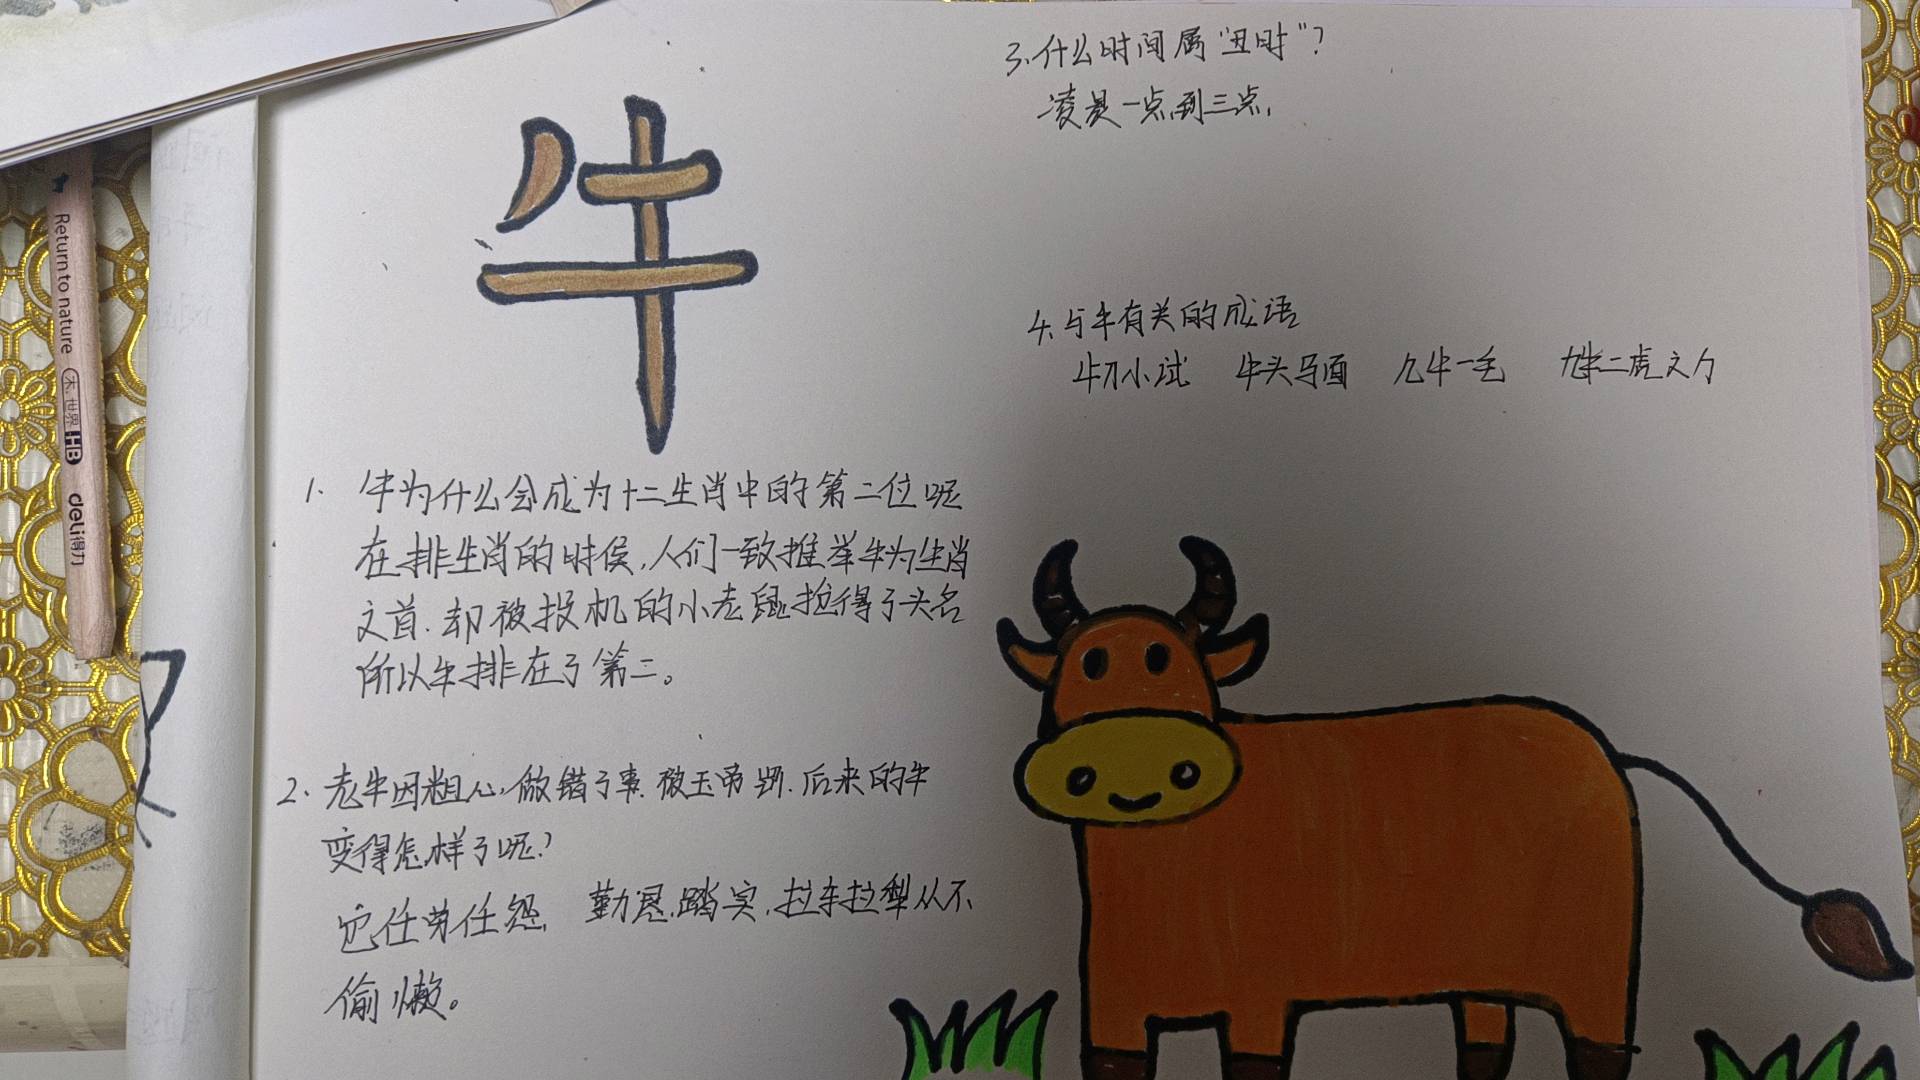 牛
1. 牛为什么会成为十二生肖中的第二位呢
在排生肖的时侯,人们一致推举牛为生肖
之首.却被投机的小老鼠抢得了头名
所以牛排在了第二。
2. 老牛因粗心,做错了事.被玉帝罚.后来的牛
变得怎样了呢?
它任劳任怨,勤恳.踏实,拉车拉犁从不
偷懒。
3.什么时间属“丑时”?
凌晨一点到三点,
4.与牛有关的成语
牛刀小试 牛头马面 九牛一毛 九牛二虎之力
Return to nature 木世界 HB deli得力